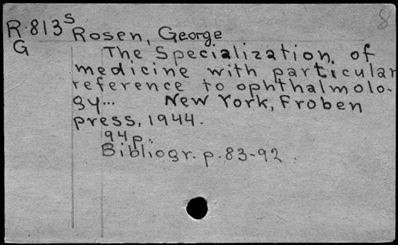 8
R.813 s Rosen, George
G The Specialization of
medicine with particular
reference to ophthalmolo-
gy... New York, Froben
press, 1944.
94p.
Bibliogr. p. 83-92.